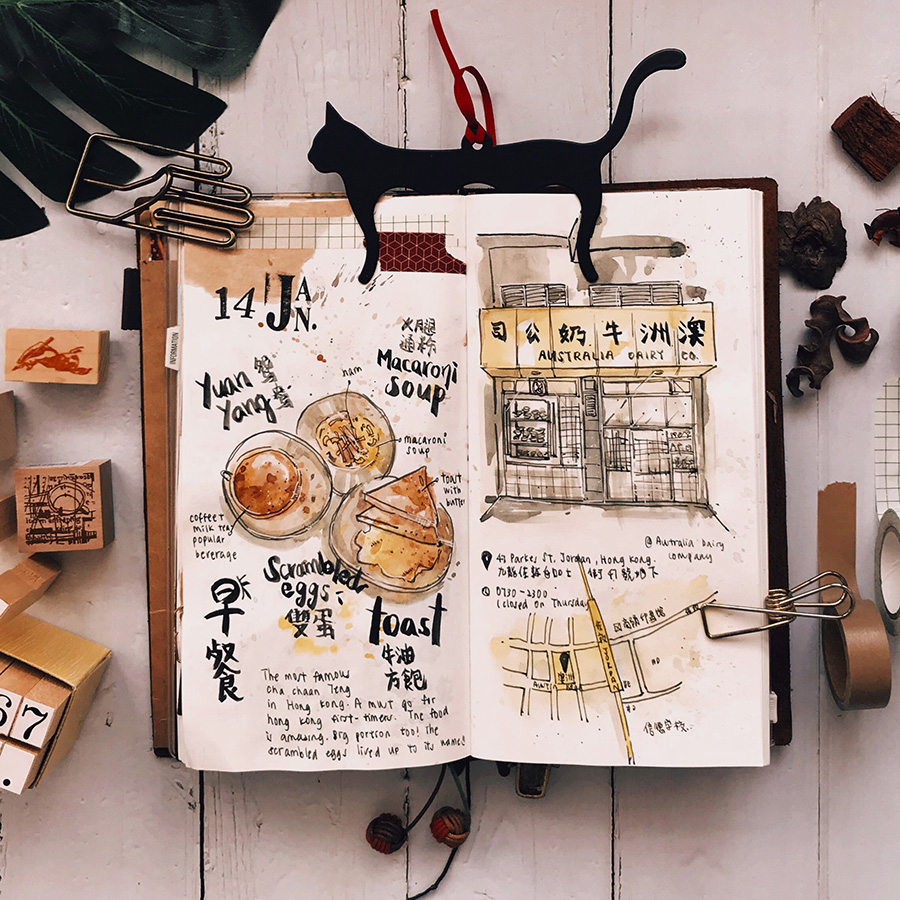 14. JAN.
火腿
通粉
Macaroni
soup
ham
Yuan
Yang
macaroni
soup
toast
with
butter
coffee +
milk tea
popular
beverage
早餐
Scrambled
eggs +
雙蛋
toast
牛油
方飽
The most famous
cha chaan teng
in Hong Kong. A must go for
hong kong first-timers. The food
is amazing. Big portion too! The
scrambled eggs lived up to its name!
INFORMATION
司公奶牛洲澳
AUSTRALIA DAIRY CO.
@ Australia dairy
company
47 Parkes St. Jordan, Hong Kong.
0730-2300
(closed on Thursday)
67